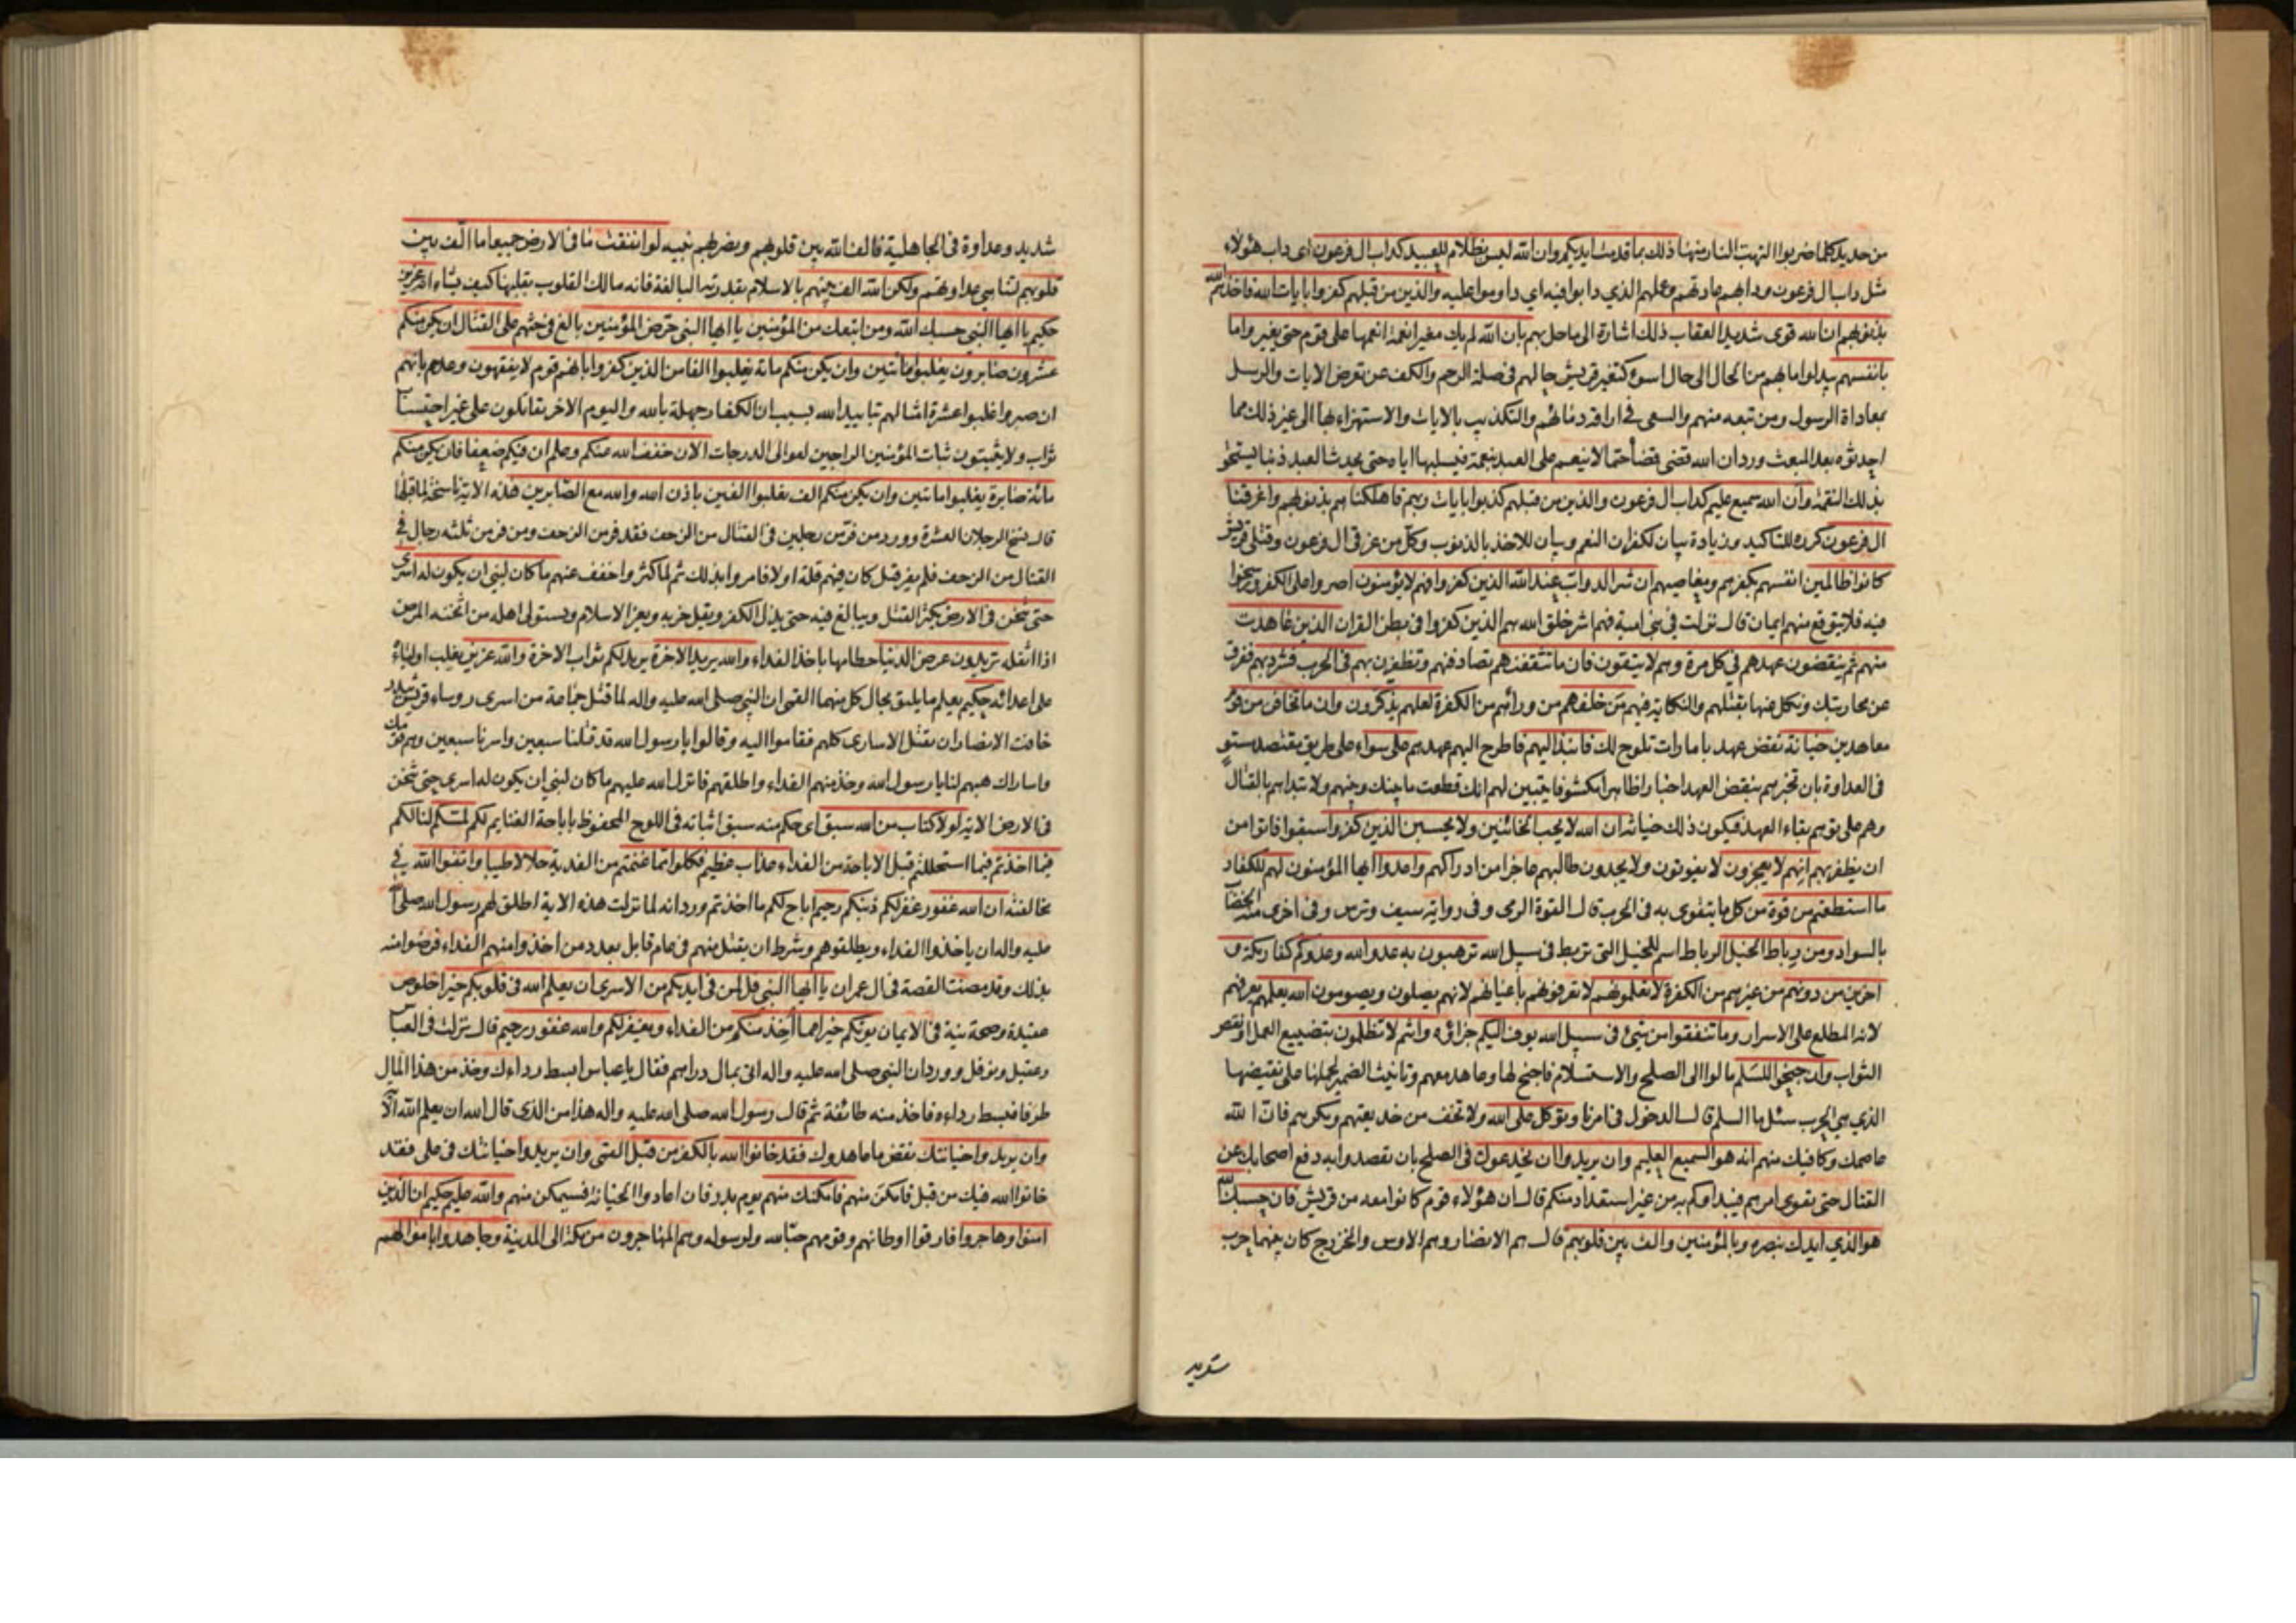 من حديد كلما ضربوا التهبت النار منها ذلك بما قدمت ايديكم وان الله ليس بظلام للعبيد كداب ال فرعون اى داب هؤلاء
مثل داب ال فرعون ودابهم عادتهم وعملهم الذي دابوا فيه اي داوموا عليه والذين من قبلهم كفروا بايات الله فاخذهم الله
بذنوبهم ان الله قوى شديد العقاب ذلك اشارة الى ما حل بهم بان الله لم يك مغيرا نعمة انعمها على قوم حتى يغيروا ما
بانفسهم يبدلوا ما بهم من الحال الى حال اسوء كتغير قريش حالهم فى صلة الرحم والكف عن تعرض الايات والرسل
بمعاداة الرسول ومن تبعه منهم والسعى فى اراقة دمائهم والتكذيب بالايات والاستهزاء بها الى غير ذلك مما
احدثوه بعد المبعث ورد ان الله قضى قضأ حتما لا ينعم على العبد بنعمة فيسلبها اياه حتى يحدث العبد ذنبا يستحق
بذلك النقمة وان الله سميع عليم كداب ال فرعون والذين من قبلهم كذبوا بايات ربهم فاهلكناهم بذنوبهم واغرقنا
ال فرعون كرره للتاكيد وزيادة بيان لكفران النعم وبيان للاخذ بالذنوب وكل من غرقى ال فرعون وقتلى قريش
كانوا ظالمين انفسهم بكفرهم ومعاصيهم ان شر الدواب عند الله الذين كفروا فهم لا يؤمنون اصروا على الكفر ورسخوا
فيه فلا يتوقع منهم ايمان قال نزلت فى بنى امية فهم اشر خلق الله هم الذين كفروا فى بطن القران الذين عاهدت
منهم ثم ينقضون عهدهم في كل مرة وهم لا يتقون فان ما تثقفنهم تصادفنهم وتظفرن بهم فى الحرب فشرد بهم ففرق
عن محاربتك ونكل عنها بقتلهم والنكاية فيهم من خلفهم من ورائهم من الكفرة لعلهم يذكرون وان ما تخافن من قوم
معاهدين خيانة نقض عهد بامارات تلوح لك فانبذ اليهم فاطرح اليهم عهدهم على سواء على طريق مقتصد مستو
فى العداوة بان تخبرهم بنقض العهد اخبارا ظاهرا مكشوفا يتبين لهم انك قطعت ما بينك وبينهم ولا تبداهم بالقتال
وهم على توهم بقاء العهد فيكون ذلك خيانة ان الله لا يحب الخائنين ولا يحسبن الذين كفروا سبقوا فاتوا من
ان يظفر بهم انهم لا يعجزون لا يفوتون ولا يجدون طالبهم عاجزا من ادراكهم واعدوا ايها المؤمنون لهم للكفار
ما استطعتم من قوة من كل ما يتقوى به فى الحرب قال القوة الرمى وفى رواية سيف وترس وفى اخرى منه الخضاب
بالسواد ومن رباط الخيل الرباط اسم للخيل التى تربط فى سبيل الله ترهبون به عدو الله وعدوكم كفار مكة و
اخرين من دونهم من غيرهم من الكفرة لا تعلمونهم لا تعرفونهم باعيانهم لانهم يصلون ويصومون الله يعلمهم يعرفهم
لانه المطلع على الاسرار وما تنفقوا من شئ فى سبيل الله يوف اليكم جزاؤه وانتم لا تظلمون بتضييع العمل او نقص
الثواب وان جنحوا للسلم مالوا الى الصلح والاستسلام فاجنح لها وعاهد معهم وتانيث الضمير لحملها على نقيضها
الذي هي الحرب سئل ما السلم قال الدخول في امرنا وتوكل على الله ولا تخف من خديعتهم ومكرهم فان الله
عاصمك وكافيك منهم انه هو السميع العليم وان يريدوا ان يخدعوك فى الصلح بان يقصدوا به دفع اصحابك عن
القتال حتى يقوى امرهم فيبداوكم به من غير استعداد منكم قال ان هؤلاء قوم كانوا معه من قريش فان حسبك الله
هو الذي ايدك بنصره وبالمؤمنين والف بين قلوبهم قال هم الانصار وهم الاوس والخزرج كان بينهما حرب
شديد وعداوة فى الجاهلية فالف الله بين قلوبهم ونصر بهم نبيه لو انفقت ما فى الارض جميعا ما الفت بين
قلوبهم لتناهي عداوتهم ولكن الله الف بينهم بالاسلام بقدرته البالغة فانه مالك القلوب يقلبها كيف يشاء انه عزيز
حكيم يا ايها النبي حسبك الله ومن اتبعك من المؤمنين يا ايها النبى حرض المؤمنين بالغ فى حثهم على القتال ان يكن منكم
عشرون صابرون يغلبوا مأتين وان يكن منكم مائة يغلبوا الفا من الذين كفروا بانهم قوم لا يفقهون وعدهم بانهم
ان صبروا غلبوا عشرة امثالهم بتاييد الله بسبب ان الكفار جهلة بالله واليوم الاخر يقاتلون على غير احتساب
ثواب ولا يثبتون ثبات المؤمنين الراجين لعوالى الدرجات الان خفف الله عنكم وعلم ان فيكم ضعفا فان يكن منكم
مائة صابرة يغلبوا مائتين وان يكن منكم الف يغلبوا الفين باذن الله والله مع الصابرين هذه الاية ناسخة لما قبلها
قال نسخ الرجلان العشرة وورد من فر من رجلين فى القتال من الزحف فقد فر من الزحف ومن فر من ثلثة رجال في
القتال من الزحف فلم يفر قيل كان فيهم قلة اولا فامروا بذلك ثم لما كثروا خفف عنهم ما كان لنبي ان يكون له اسرى
حتى يثخن فى الارض يكثر القتل ويبالغ فيه حتى يذل الكفر ويقل حزبه ويعز الاسلام ويستولى اهله من اثخنه المرض
اذا اثقله تريدون عرض الدنيا حطامها باخذ الفداء والله يريد الاخرة يريد لكم ثواب الاخرة والله عزيز يغلب اولياءه
على اعدائه حكيم يعلم ما يليق بحال كل منهما القمى ان النبى صلى الله عليه واله لما قتل جماعة من اسرى رؤساء قريش ببدر
خافت الانصار ان يقتل الاسارى كلهم فقاموا اليه وقالوا يا رسول الله قد قتلنا سبعين واسرنا سبعين وهم قومك
واساراك هبهم لنا يا رسول الله وخذ منهم الفداء واطلقهم فانزل الله عليهم ما كان لنبى ان يكون له اسرى حتى يثخن
فى الارض الاية لولا كتاب من الله سبق اى حكم منه سبق اثباته فى اللوح المحفوظ باباحة الغنايم لكم لمسكم لنالكم
فيما اخذتم فيما استحللتم قبل الاباحة من الفداء عذاب عظيم فكلوا مما غنمتم من الفدية حلالا طيبا واتقوا الله في
مخالفته ان الله غفور غفر لكم ذنبكم رحيم اباح لكم ما اخذتم ورد انه لما نزلت هذه الاية اطلق لهم رسول الله صلى الله
عليه واله ان ياخذوا الفداء ويطلقوهم وشرط ان يقتل منهم فى عام قابل بعدد من اخذوا منهم الفداء فرضوا منه
بذلك وقد مضت القصة فى ال عمران يا ايها النبي قل لمن فى ايديكم من الاسرى ان يعلم الله فى قلوبكم خيرا خلوص
عقيدة وصحة نية فى الايمان يؤتكم خيرا مما اخذ منكم من الفداء ويغفر لكم والله غفور رحيم قال نزلت فى العباس
وعقيل ونوفل وورد ان النبى صلى الله عليه واله اتى بمال دراهم فقال يا عباس ابسط رداءك وخذ من هذا المال
طرفا فبسط رداءه فاخذ منه طائفة ثم قال رسول الله صلى الله عليه واله هذا من الذى قال الله ان يعلم الله الآية
وان يريدوا خيانتك نقض ما عاهدوك فقد خانوا الله بالكفر من قبل القمى وان يريدوا خيانتك فى على فقد
خانوا الله فيك من قبل فامكن منهم فامكنك منهم يوم بدر فان اعادوا الخيانة فسيمكن منهم والله عليم حكيم ان الذين
امنوا وهاجروا فارقوا اوطانهم وقومهم حبا لله ولرسوله وهم المهاجرون من مكة الى المدينة وجاهدوا باموالهم